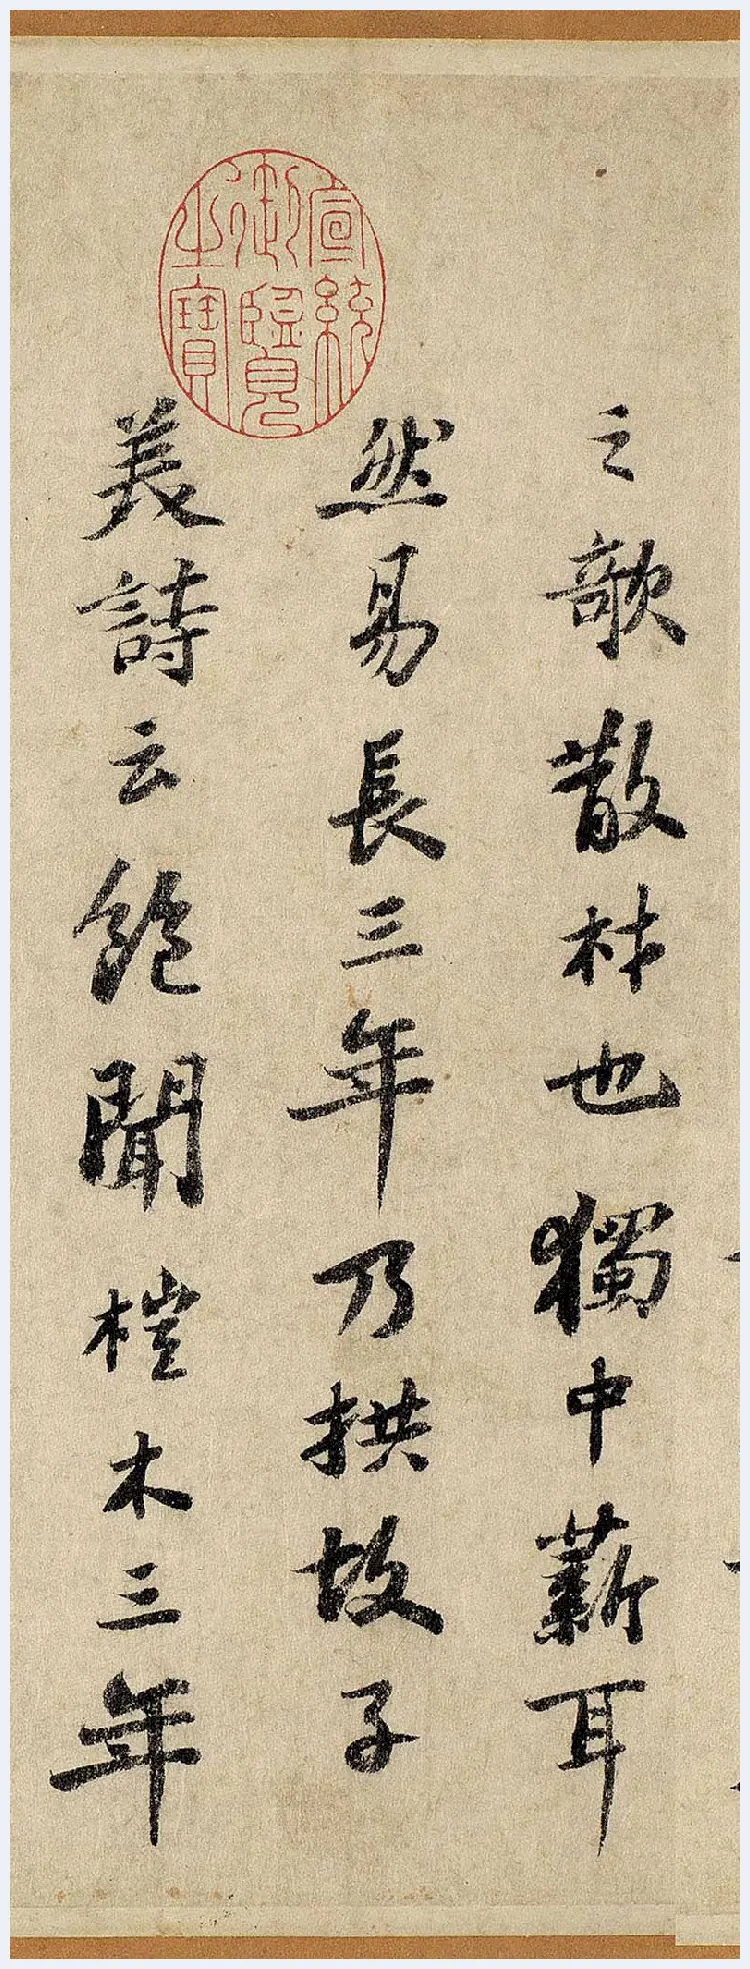 之欹散材也獨中薪耳
然易長三年乃拱故子
美詩云飽聞榿木三年
宣統
御覽
之寶